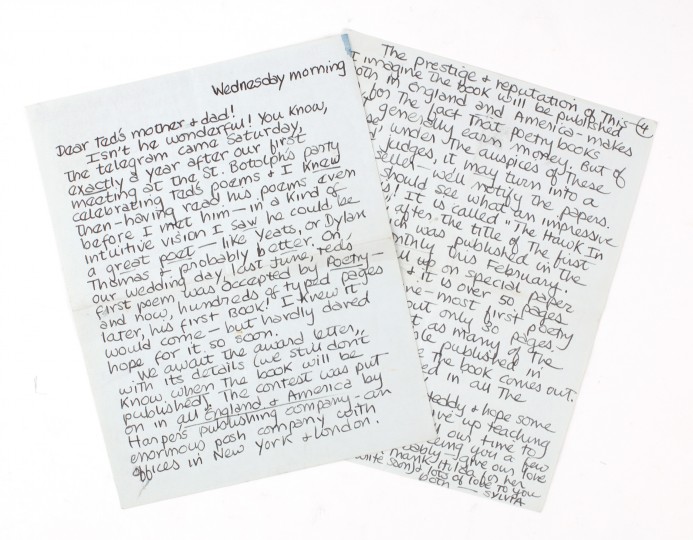 Wednesday morning
Dear Ted's mother & dad!
Isn't he wonderful! You know,
the telegram came Saturday,
exactly a year after our first
meeting at the St. Botolph's party
celebrating Ted's poems & I knew
then-having read his poems even
before I met him-in a kind of
intuitive vision I saw he could be
a great poet - like Yeats, or Dylan
Thomas & probably better. On
our wedding day last June, Ted's
first poem was accepted by Poetry-
and now, hundreds of typed pages
later, his first Book! I knew it
would come - but hardly dared
hope for it so soon.
We await the award letter,
with its details (we still don't
know when the book will be
published). The contest was put
on in all England & America by
Harper's publishing company-an
enormous posh company with
offices in New York & London.
4
The prestige & reputation of this
I imagine the book will be published
both in England and America-makes
for the fact that poetry books
generally earn money. But of
under the auspices of these
judges, it may turn into a
seller-we'll notify the papers.
should see what an impressive
! It is called "The Hawk In
after the title of the first
was published in the
this February.
up on special paper
& it is over 50 pages
-most first poetry
out only 30 pages.
as many of the
published in
the book comes out.
in all the
Teddy & hope some
give up teaching
our time to
you a few
-give our love
Thank Hilda for her
lots of love to you
both - Sylvia